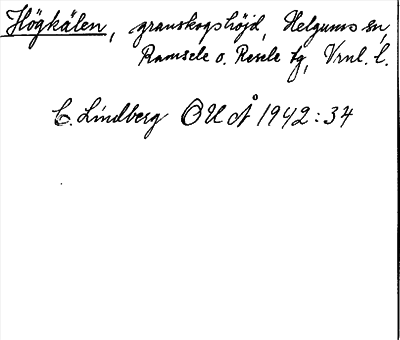 Högkälen, granskogshöjd, Helgums sn,
Ramsele o. Resele tg, Vrnl. l.
C. Lindberg OUÅ 1942:34